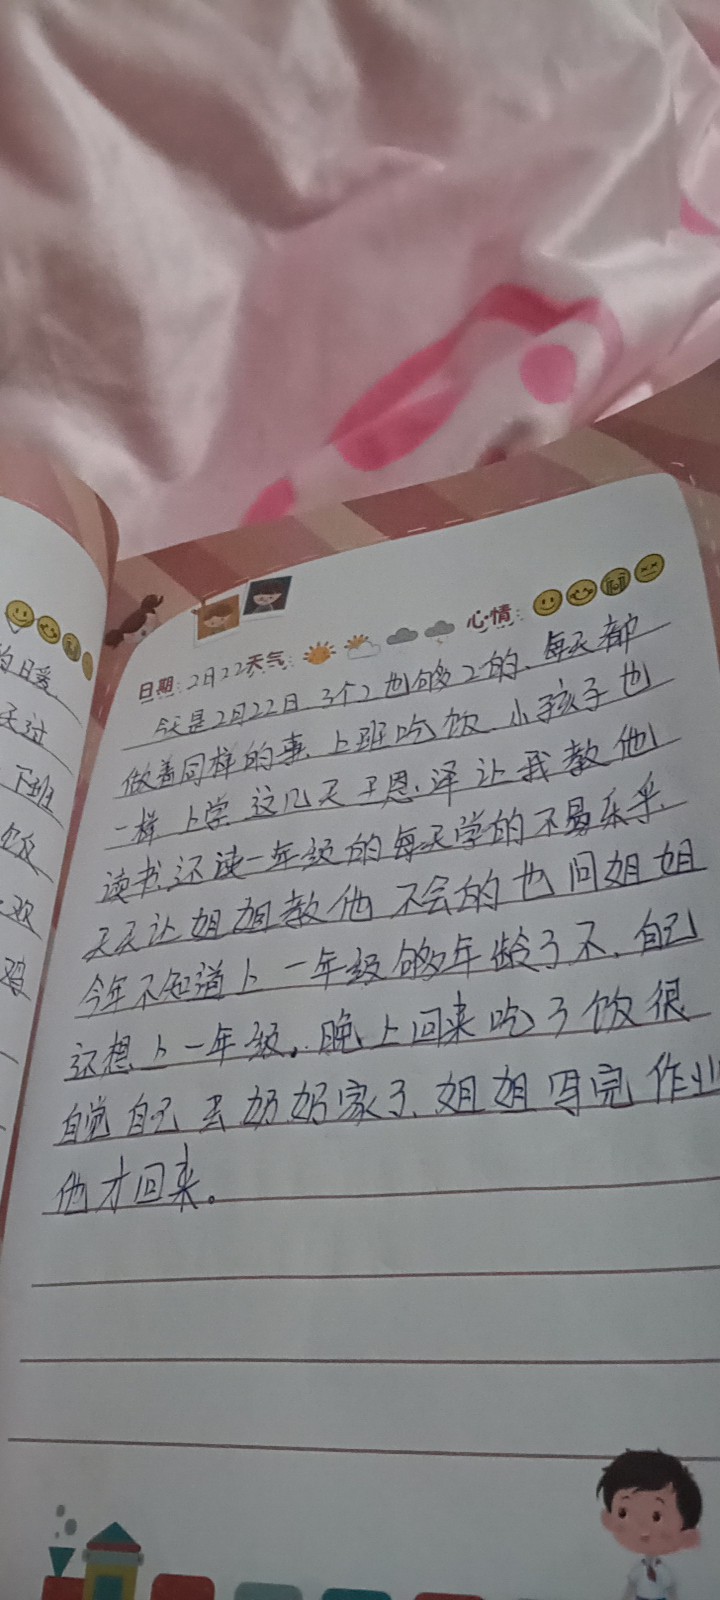 的日爱
天过
下班
饭
欢
鸡
日期：2月22天气： 心情：
今天是2月22日 3个2也够2的、每天都
做着同样的事、上班吃饭、小孩子也
一样 上学 这几天王恩泽让我教他
读书、还读一年级的每天学的不易乐乎、
天天让姐姐教他 不会的也问姐姐
今年不知道上一年级够年龄了不、自己
还想上一年级。晚上回来吃了饭很
自觉自己去奶奶家了、姐姐写完作业
他才回来。